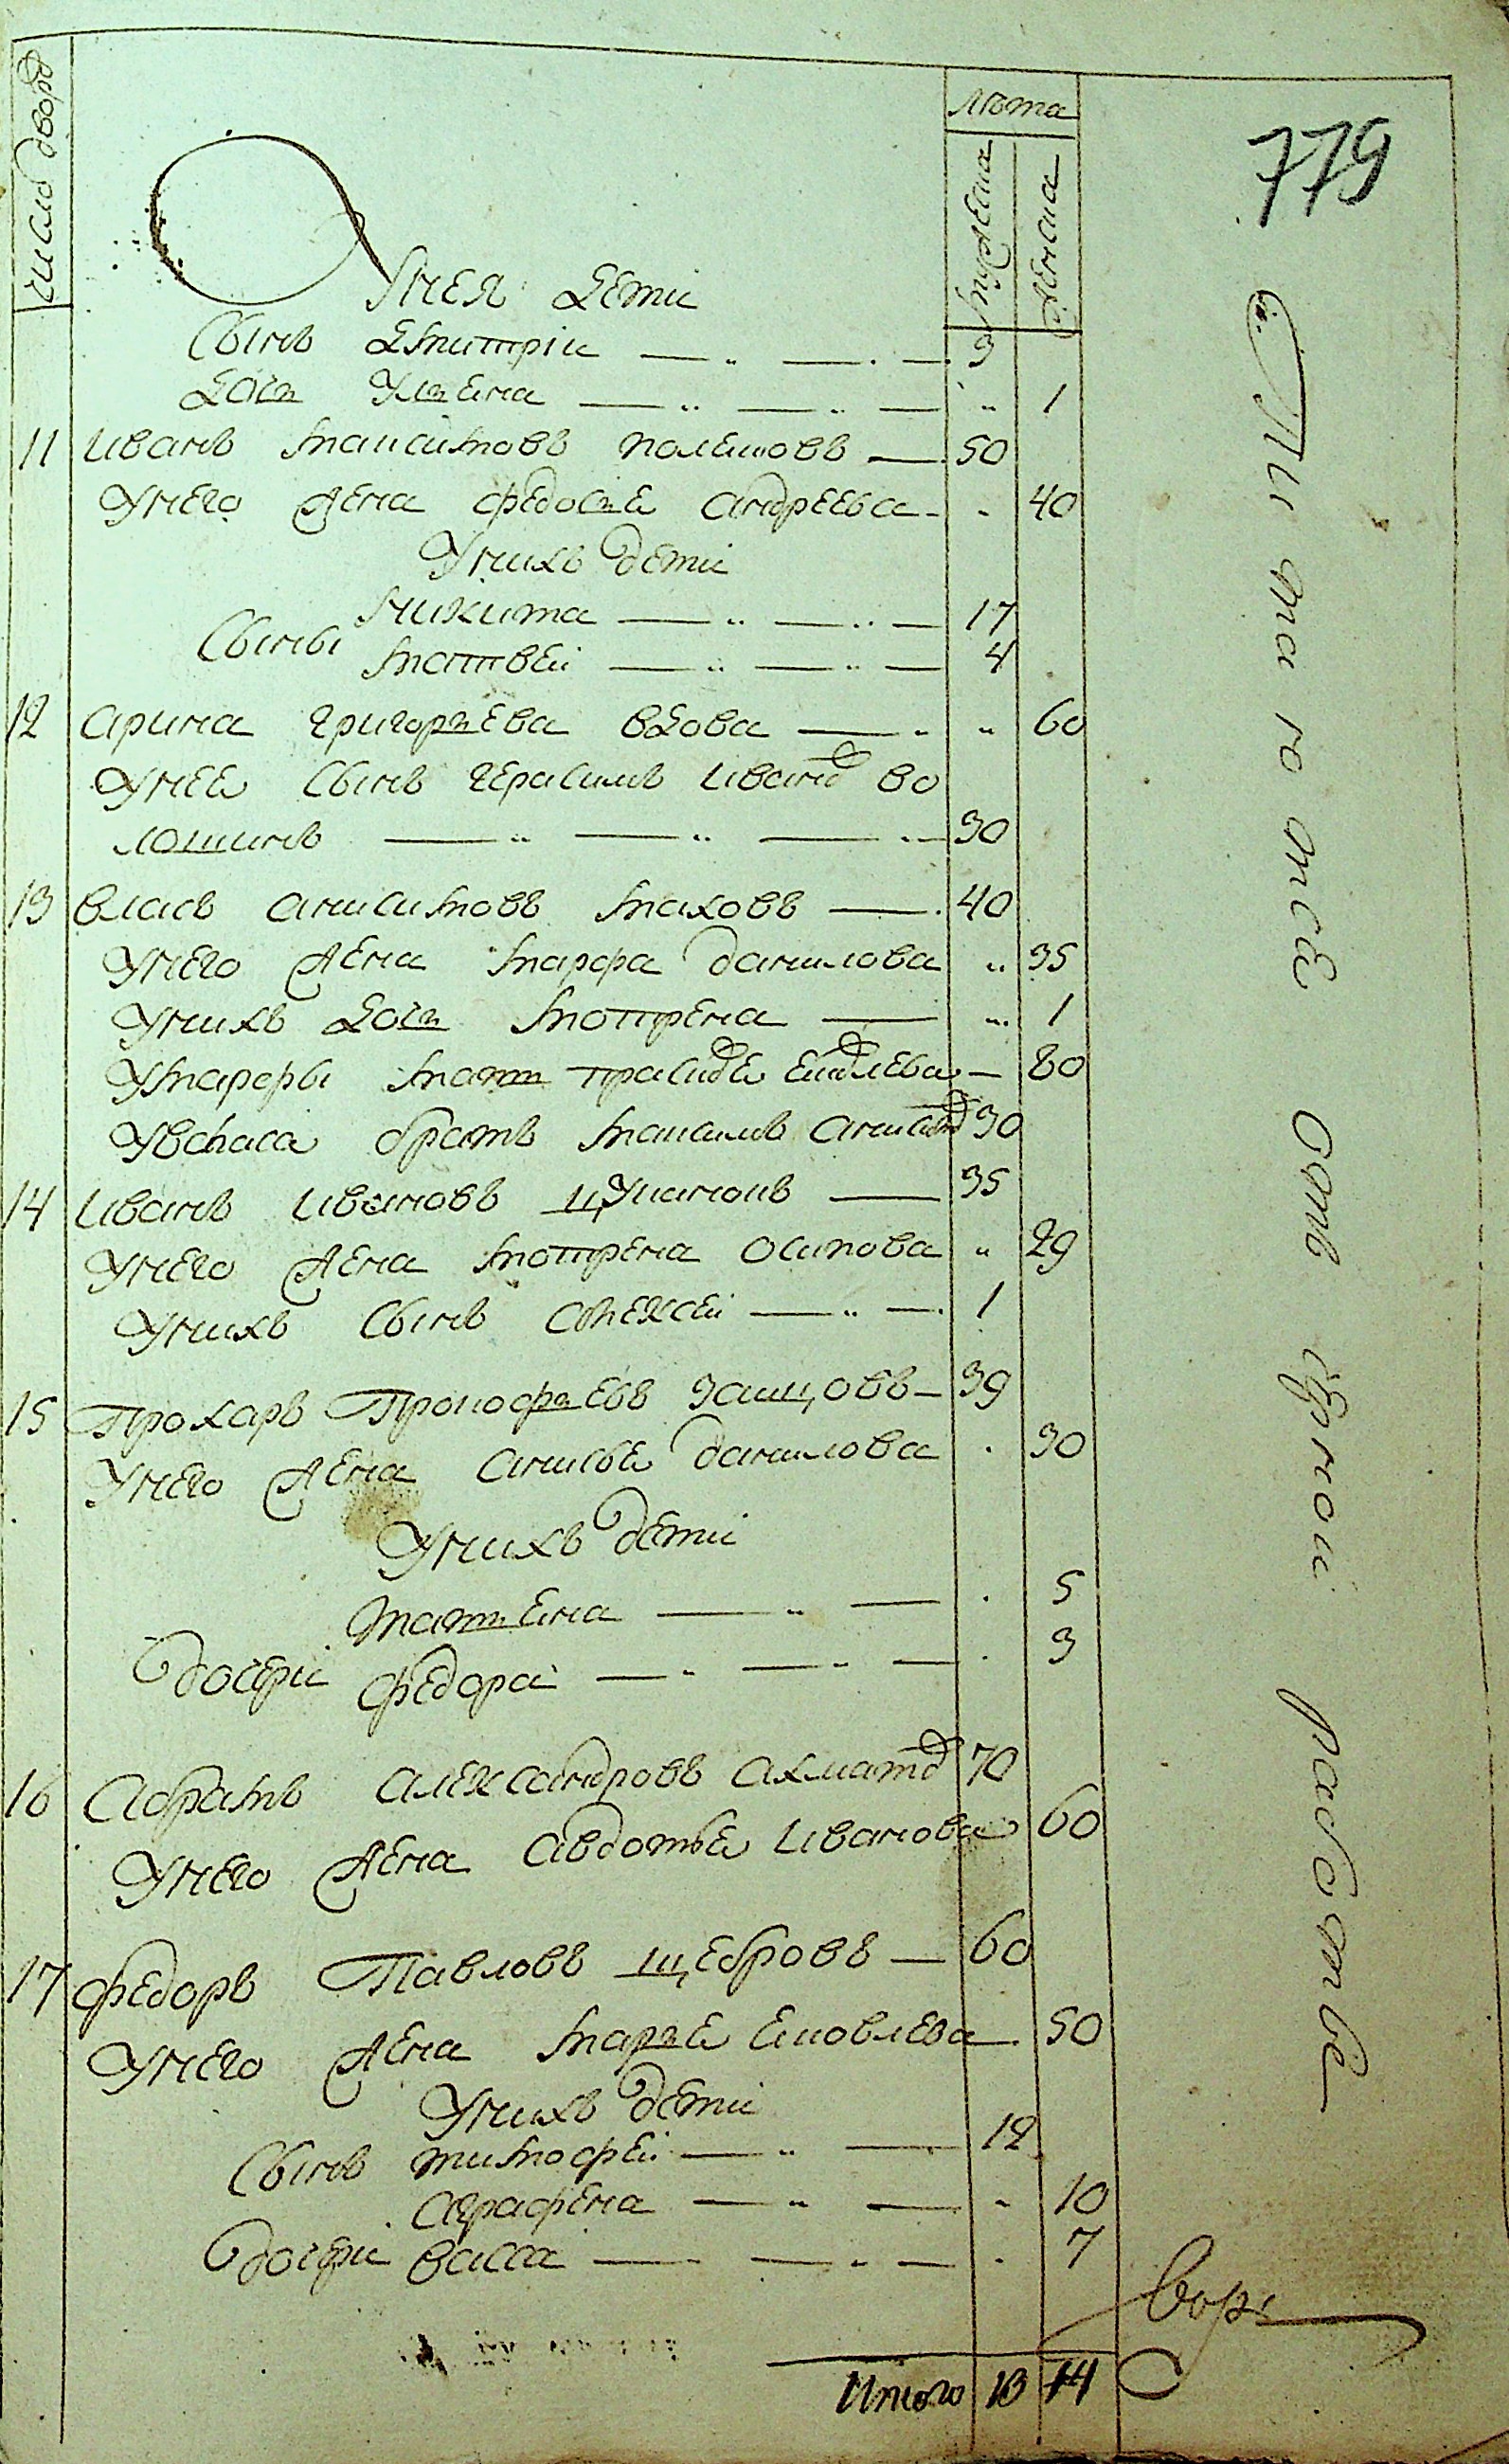 число дворо
лѣта
мужеска
женска
779
Унея дети
Сынъ Дмитріи 3
Дочь Ульена 1
11 Иванъ Максимовъ Полешовъ 50
Унего жена Федосье Андреева 40
Унихъ дети
Никита 17
Сыны
Матвеи 4
12 Арина Григорьева вдова 60
Унее сынъ Герасимъ Ивано во
лошинъ 30
13 Власъ Анисимовъ Маховъ 40
Унего жена Марфа Данилова 35
Унихъ дочь Мотрена 1
Умарфы мать 80
Увласа братъ Максимъ 30
14 Иванъ Ивановъ 35
Унего жена Мотрена Осипова 29
Унихъ сынъ Алексеи 1
15 Прохаръ Прокофьевъ 39
Унего жена Анисье Данилова 30
Унихъ дети
Татьена 5
Дочери
Федора 3
16 Абрамъ Александровъ Ахмато 70
Унего жена Авдотье Иванова 60
17 Федоръ Павловъ Щебровъ 60
Унего жена Марье Ековлева 50
Унихъ дети
Сынъ Тимофеи 12
Аграфена 10
Дочери Васса 7
Итого 13 14
отъ
работѣ